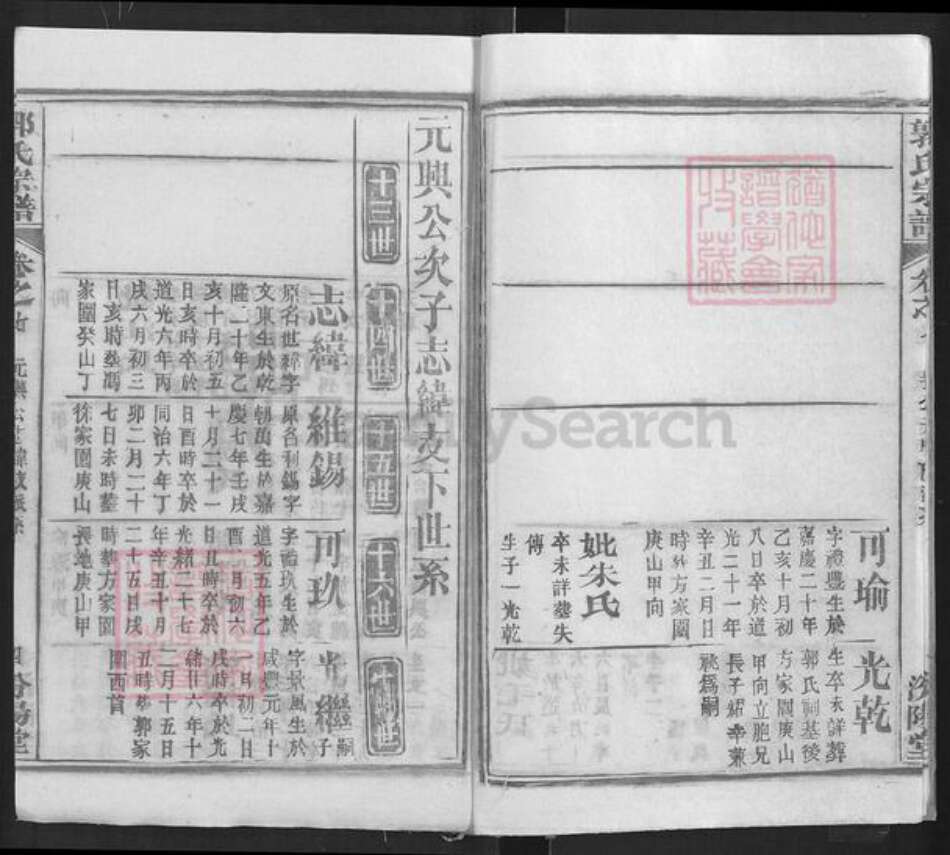 郭氏宗譜
可瑜
字禮豐生於
嘉慶二十年
乙亥十月初
八日卒於道
光二十一年
辛丑二月日
時葬方家園
庚山甲向
妣朱氏
卒未詳塟失
傳
生子一光乾
光乾
生卒未詳葬
郭氏祠基後
方家園庚山
甲向立胞兄
長子紹幸兼
祧為嗣
汾陽堂
元興公次子志緯支下世系
十三世
十四世
十五世
十六世
十七世
志緯
原名世緯字
文東生於乾
隆二十年乙
亥十月初五
日亥時卒於
道光六年丙
戌六月初三
日亥時塟馮
家園癸山丁
維錫
原名利錫字
朝萬生於嘉
慶七年壬戌
十月二十一
日酉時卒於
同治六年丁
卯二月二十
七日未時塟
徐家園庚山
可玖
字禮玖生於
道光五年乙
酉 月初六
日丑時卒於
光緒二十七
年辛丑十月
二十五日戌
時塟方家園
長地庚山甲
光繼
嗣子
字景風生於
咸豐元年十
一月初二日
戌時卒於光
緒廿六年十
二月十五日
丑時塟郭家
園酉首
郭氏宗譜
汾陽堂
FamilySearch